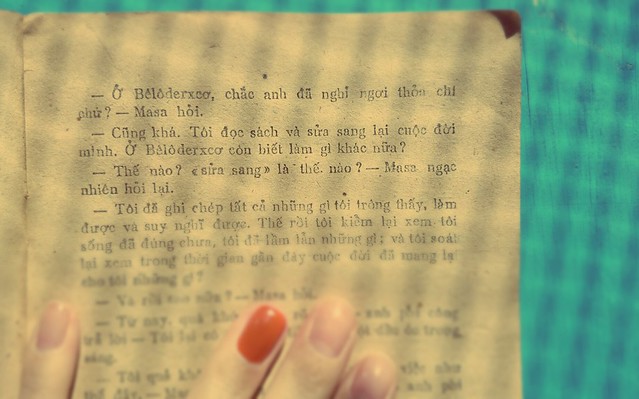 — Ở Bêlôderxcơ, chắc anh đã nghỉ ngơi thỏa chí
chứ? — Masa hỏi.
— Cũng khá. Tôi đọc sách và sửa sang lại cuộc đời
mình. Ở Bêlôderxcơ còn biết làm gì khác nữa?
— Thế nào? «sửa sang» là thế nào? — Masa ngạc
nhiên hỏi lại.
— Tôi đã ghi chép tất cả những gì tôi trông thấy, làm
được và suy nghĩ được. Thế rồi tôi kiểm lại xem tôi
sống đã đúng chưa, tôi đã lầm lẫn những gì; và tôi soát
lại xem trong thời gian gần đây cuộc đời đã mang lại
cho tôi những gì?
— Và rồi sao nữa? — Masa hỏi.
— Từ nay, quá anh
— Tôi
— Tôi quá việc như
thế đây. anh